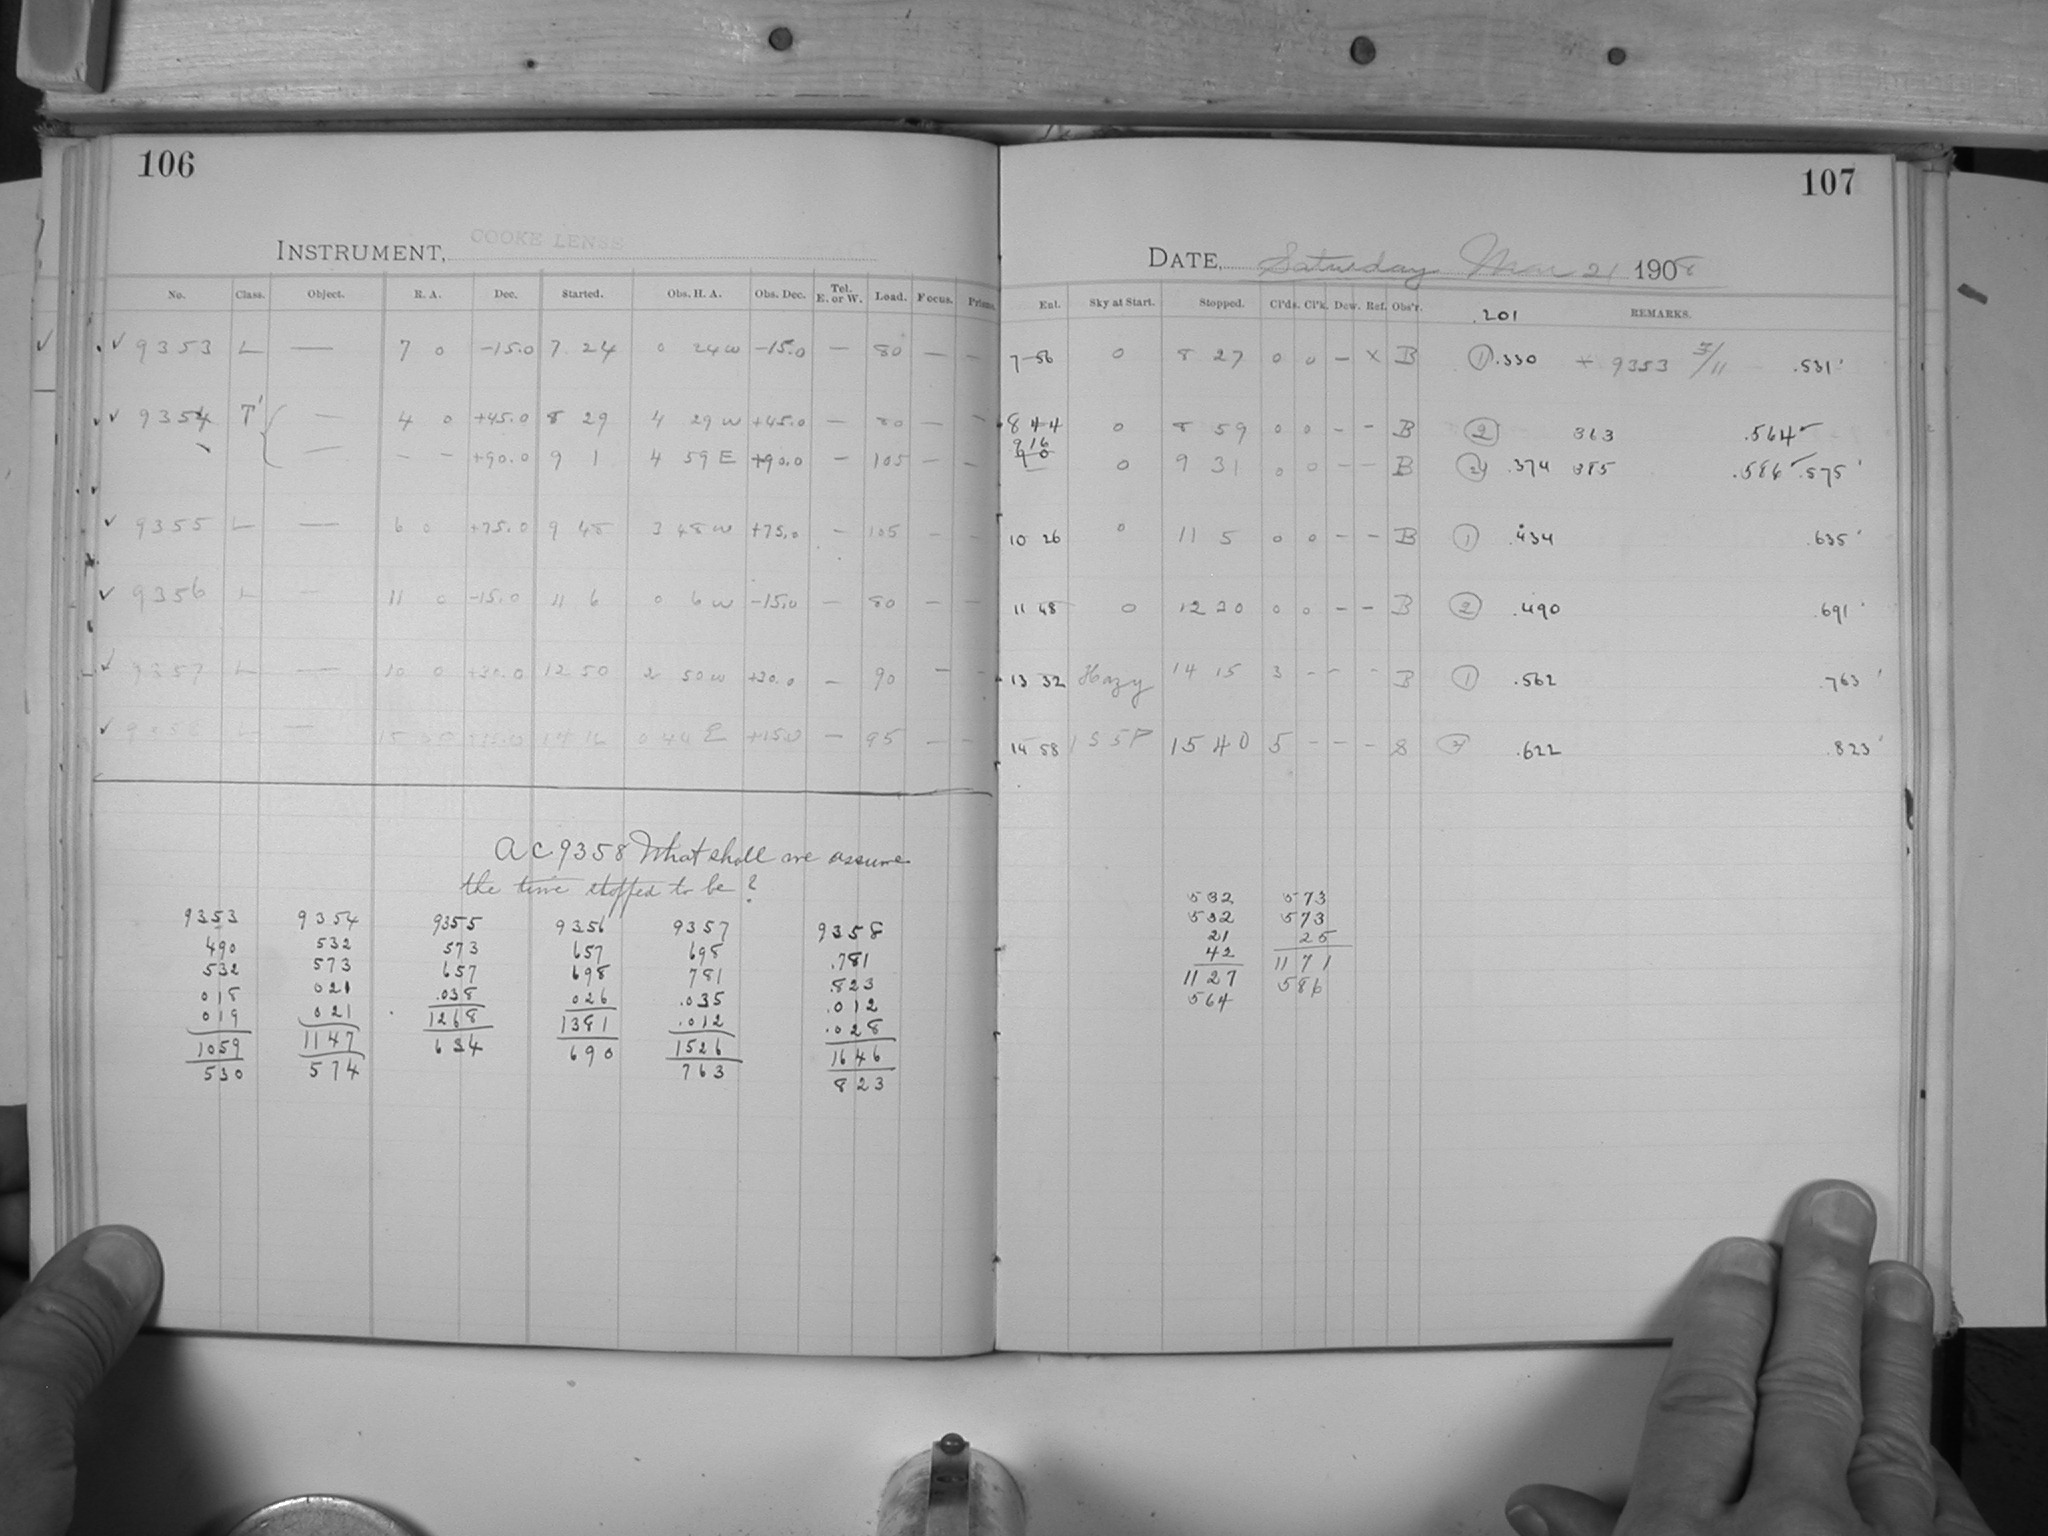 106
INSTRUMENT, COOKE LENSE
No. Class. Object. R. A. Dec. Started. Obs. H. A. Obs. Dec. Tel. E. or W. Load. Focus. Prisms.
9353 L — 7 0 -15.0 7 24 0 24 W -15.0 — 80 — —
9354 T' — 4 0 +45.0 8 29 4 29 W +45.0 — 80 — —
— — — +90.0 9 1 4 59 E +90.0 — 105 — —
9355 L — 6 0 +75.0 9 48 3 48 W +75.0 — 105 — —
9356 L — 11 0 -15.0 11 6 0 6 W -15.0 — 80 — —
9357 L — 10 0 +30.0 12 50 2 50 W +30.0 — 90 — —
9358 L — 15 14 16 0 44 E +15.0 — 95 — —
a c 9358 What shall we assume
the time stopped to be?
9353 9354 9355 9356 9357 9358
490 532 573 657 698 .781
532 573 657 698 781 .823
018 021 .038 026 .035 .012
019 021 1268 1381 .012 .028
1059 1147 634 690 1526 1646
530 574 763 823
107
DATE, Saturday Mar 21 1908
Ent. Sky at Start. Stopped. Cl'ds. Cl'k. Dew. Ref. Obs'r. .201 REMARKS.
7-56 0 8 27 0 0 — X B 1 .330 + 9353 3/11 .531
8 44 0 8 59 0 0 - - B 2 363 .564
9 16
9 0 0 9 31 0 0 - - B .374 385 .586 .575
10 26 0 11 5 0 0 - - B 1 .434 .635
11 48 0 12 30 0 0 - - B 2 .490 .691
13 32 Hazy 14 15 3 - - - B 1 .562 .763
14 58 15 40 5 - - - .622 .823
532 573
532 573
21 25
42 1171
1127 586
564